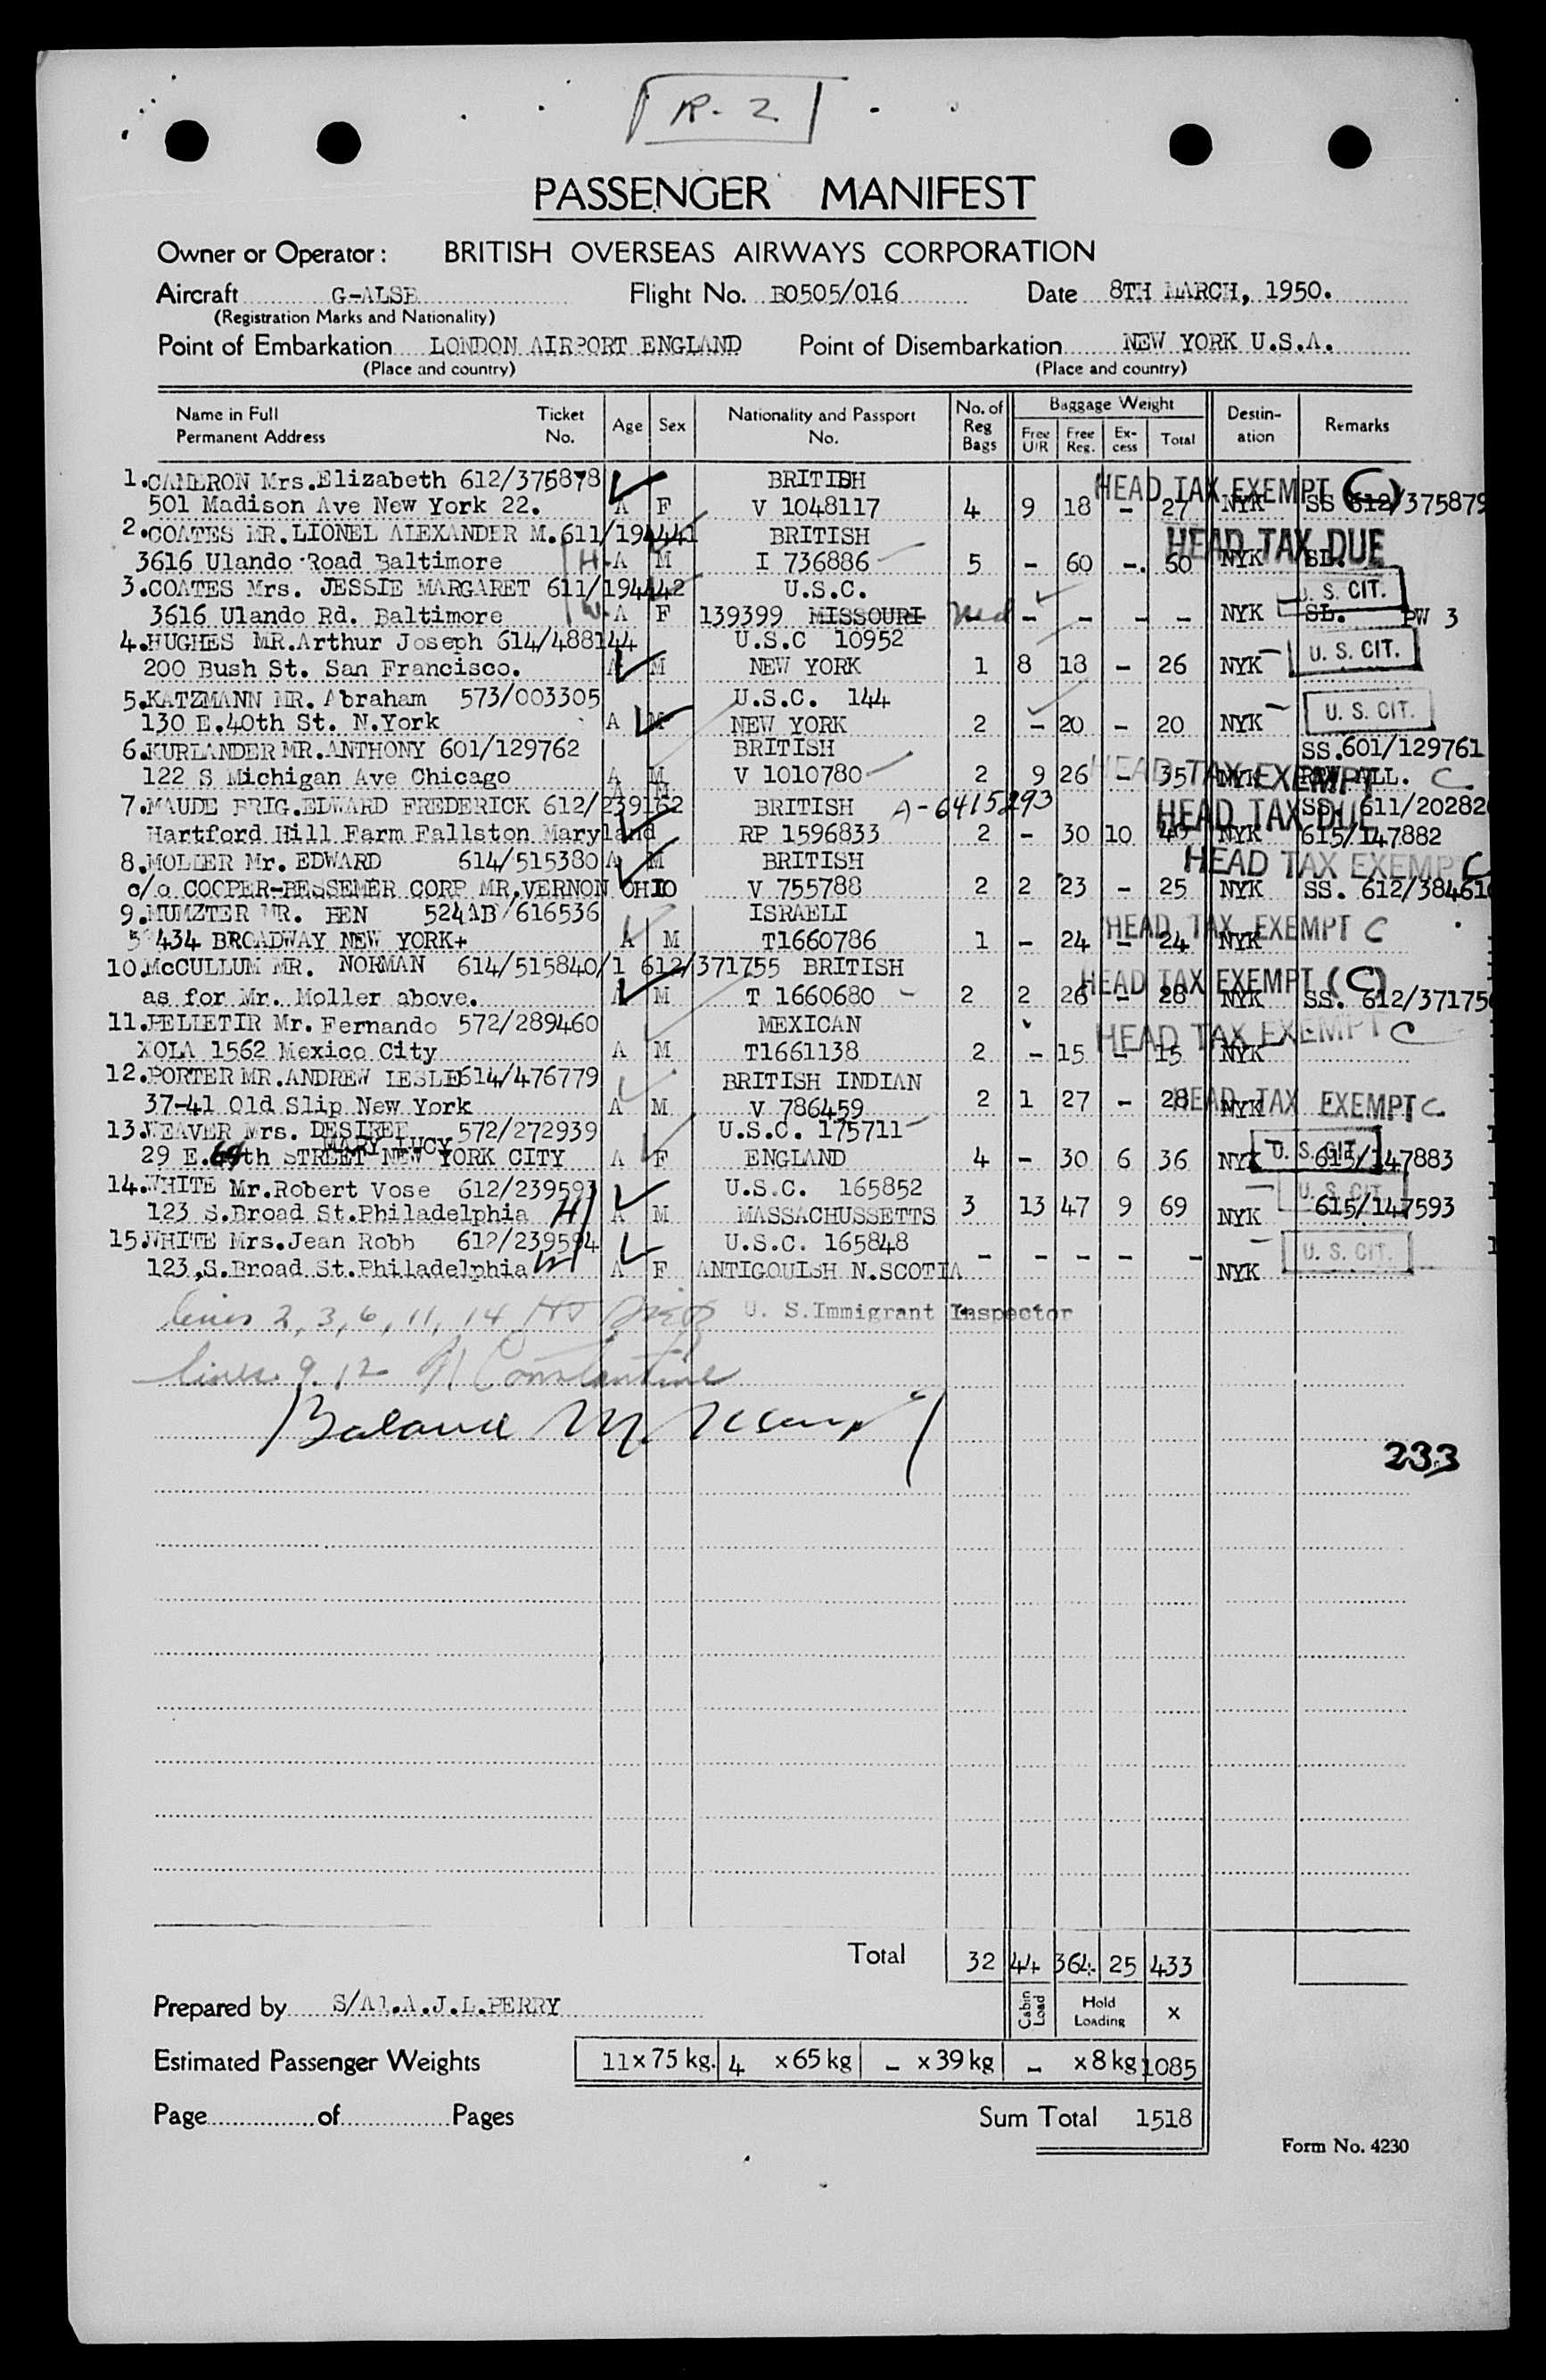 R-2
PASSENGER MANIFEST
Owner or Operator: BRITISH OVERSEAS AIRWAYS CORPORATION
Aircraft G-ALSB Flight No. BO505/016 Date 8TH MARCH, 1950.
(Registration Marks and Nationality)
Point of Embarkation LONDON AIRPORT ENGLAND Point of Disembarkation NEW YORK U.S.A.
(Place and country) (Place and country)
Name in Full Permanent Address Ticket No. Age Sex Nationality and Passport No. No. of Reg Bags Baggage Weight Free U/R Free Reg. Ex-cess Total Destin-ation Remarks
1.CAMERON Mrs.Elizabeth 612/375878 BRITISH HEAD TAX EXEMPT (C)
501 Madison Ave New York 22. A F V 1048117 4 9 18 - 27 NYK SS 612/375879
2.COATES MR.LIONEL ALEXANDER M.611/194441 BRITISH HEAD TAX DUE
3616 Ulando Road Baltimore H A M I 736886 5 - 60 -. 60 NYK SL.
3.COATES Mrs. JESSIE MARGARET 611/194442 U.S.C. U. S. CIT.
3616 Ulando Rd. Baltimore W A F 139399 MISSOURI - - - - NYK SL. PW 3
4.HUGHES MR.Arthur Joseph 614/488144 U.S.C 10952 U. S. CIT.
200 Bush St. San Francisco. A M NEW YORK 1 8 18 - 26 NYK
5.KATZMANN MR. Abraham 573/003305 U.S.C. 144 U. S. CIT.
130 E.40th St. N.York A M NEW YORK 2 - 20 - 20 NYK
6.KURLANDER MR.ANTHONY 601/129762 BRITISH SS.601/129761
122 S Michigan Ave Chicago A M V 1010780 2 9 26 - 35 NYK HEAD TAX EXEMPT ALL. C
7.MAUDE BRIG.EDWARD FREDERICK 612/239162 A M BRITISH A-6415293 HEAD TAX DUE SS. 611/20282
Hartford Hill Farm Fallston Maryland RP 1596833 2 - 30 10 40 NYK 615/147882
8.MOLLER Mr. EDWARD 614/515380 A M BRITISH HEAD TAX EXEMPT C
c/o COOPER-BESSEMER CORP MR,VERNON OHIO V 755788 2 2 23 - 25 NYK SS. 612/38461
9.MUMZTER MR. BEN 524AB/616536 ISRAELI HEAD TAX EXEMPT C
434 BROADWAY NEW YORK+ A M T1660786 1 - 24 - 24 NYK
10.McCULLUM MR. NORMAN 614/515840/1 612/371755 BRITISH HEAD TAX EXEMPT (C)
as for Mr. Moller above. A M T 1660680 2 2 26 - 28 NYK SS. 612/37175
11.PELLETIR Mr. Fernando 572/289460 MEXICAN HEAD TAX EXEMPT C
XOLA 1562 Mexico City A M T1661138 2 - 15 - 15 NYK
12.PORTER MR.ANDREW LESLIE 614/476779 BRITISH INDIAN
37-41 Old Slip New York A M V 786459 2 1 27 - 28 NYK HEAD TAX EXEMPT C
13.WEAVER Mrs. DESIREE MARY LUCY 572/272939 U.S.C. 175711 U. S. CIT.
29 E.64th STREET NEW YORK CITY A F ENGLAND 4 - 30 6 36 NYK 615/147883
14.WHITE Mr.Robert Vose 612/239593 U.S.C. 165852 U. S. CIT.
123 S.Broad St.Philadelphia H A M MASSACHUSSETTS 3 13 47 9 69 NYK 615/147593
15.WHITE Mrs.Jean Robb 612/239594 U.S.C. 165848 U. S. CIT.
123,S.Broad St.Philadelphia W A F ANTIGOUISH N.SCOTIA - - - - - NYK
lines 2, 3, 6, 11, 14 U. S.Immigrant Inspector
lines 9. 12 Constantine
Balance M.
233
Total 32 44 364 25 433
Prepared by S/A1.A.J.L.PERRY Cabin Load Hold Loading x
Estimated Passenger Weights 11 x 75 kg. 4 x 65 kg - x 39 kg - x 8 kg 1085
Page of Pages Sum Total 1518
Form No. 4230